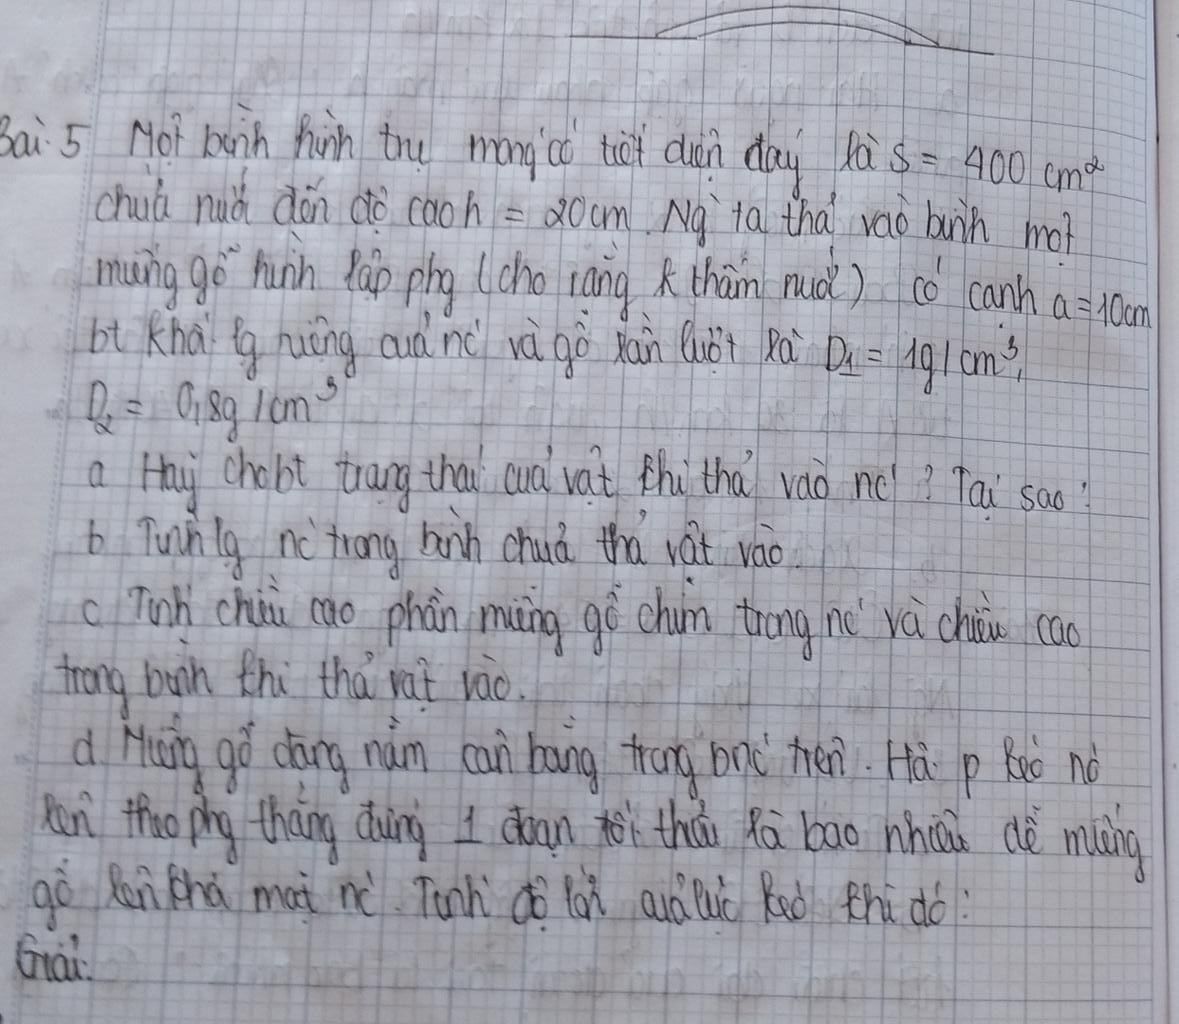 Bài 5 Một bình hình trụ mỏng có tiết diện đáy là S = 400 cm²
chứa nước đến độ cao h = 20cm. Ng` ta thả vào bình một
miếng gỗ hình lập phg (cho rằng k thấm nước) có cạnh a = 10cm
bt khối lg riêng của nc và gỗ lần lượt là D₁ = 1g/cm³,
D₂ = 0,8g/cm³
a Hãy cho bt trạng thái của vật khi thả vào nc ? Tại sao?
b Tính lg nc trong bình chưa thả vật vào.
c Tính chiều cao phần miếng gỗ chìm trong nc và chiều cao
trong bình khi thả vật vào.
d Miếng gỗ đang nằm cân bằng trong bnc trên. Hỏi p kéo nó
lên theo phg thẳng đứng 1 đoạn tối thiểu là bao nhiêu để miếng
gỗ lên khỏi mặt nc. Tính độ lớn của lực kéo khi đó:
Giải: